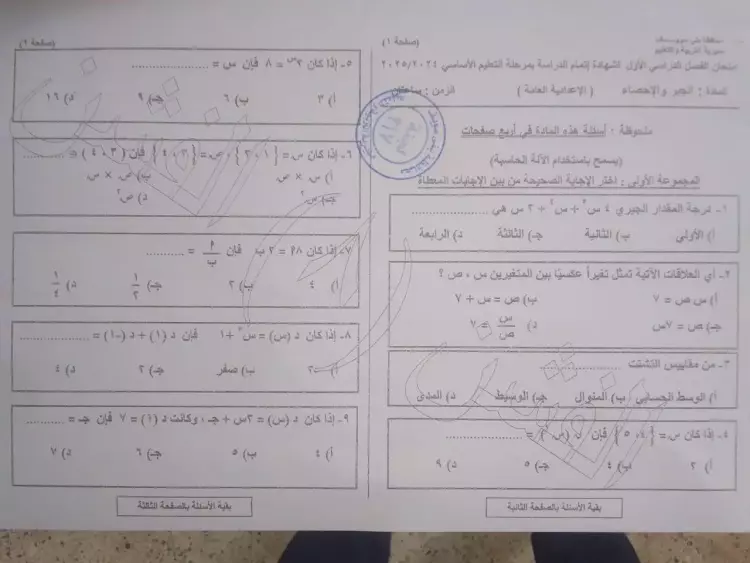 (صفحة ١)
محافظة بني سويف
مديرية التربية والتعليم
امتحان الفصل الدراسي الأول لشهادة إتمام الدراسة بمرحلة التعليم الأساسي ٢٠٢٥/٢٠٢٤
المادة : الجبر والإحصاء ( الإعدادية العامة ) الزمن : ساعتان
ملحوظة : أسئلة هذه المادة في أربع صفحات
(يسمح باستخدام الآلة الحاسبة)
المجموعة الأولى : اختر الإجابة الصحيحة من بين الإجابات المعطاة
١- درجة المقدار الجبري ٤ س٣ + س٢ + ٣ س هي ............
أ) الأولى ب) الثانية جـ) الثالثة د) الرابعة
٢- أي العلاقات الآتية تمثل تغيراً عكسيًا بين المتغيرين س ، ص ؟
أ) س ص = ٧ ب) ص = س + ٧
جـ) ص = ٧س د) س/ص = ٧
٣- من مقاييس التشتت ............
أ) الوسط الحسابي ب) المنوال جـ) الوسيط د) المدى
٤- إذا كان س = {٤ ، ٥} فإن ............
أ) ٢ ب) ٤ جـ) ٥ د) ٩
بقية الأسئلة بالصفحة الثانية
(صفحة ٢)
٥- إذا كان ٢س = ٨ فإن س = ............
أ) ٣ ب) ٦ جـ) ٩ د) ١٦
٦- إذا كان س = {١ ، ٢} ، ص = {٣ ، ٤} فإن (٣ ، ٤) ∈ ............
أ) س × ص ب) ص × س
جـ) س٢ د) ص٢
٧- إذا كان ٨أ = ٢ ب فإن أ/ب = ............
أ) ٤ ب) ٢ جـ) ١/٢ د) ١/٤
٨- إذا كان د (س) = س٣ + ١ فإن د (١) + د (-١) = ............
أ) -٢ ب) صفر جـ) ٢ د) ٤
٩- إذا كان د (س) = ٢س + جـ ، وكانت د (١) = ٧ فإن جـ = ............
أ) ٤ ب) ٥ جـ) ٦ د) ٧
بقية الأسئلة بالصفحة الثالثة